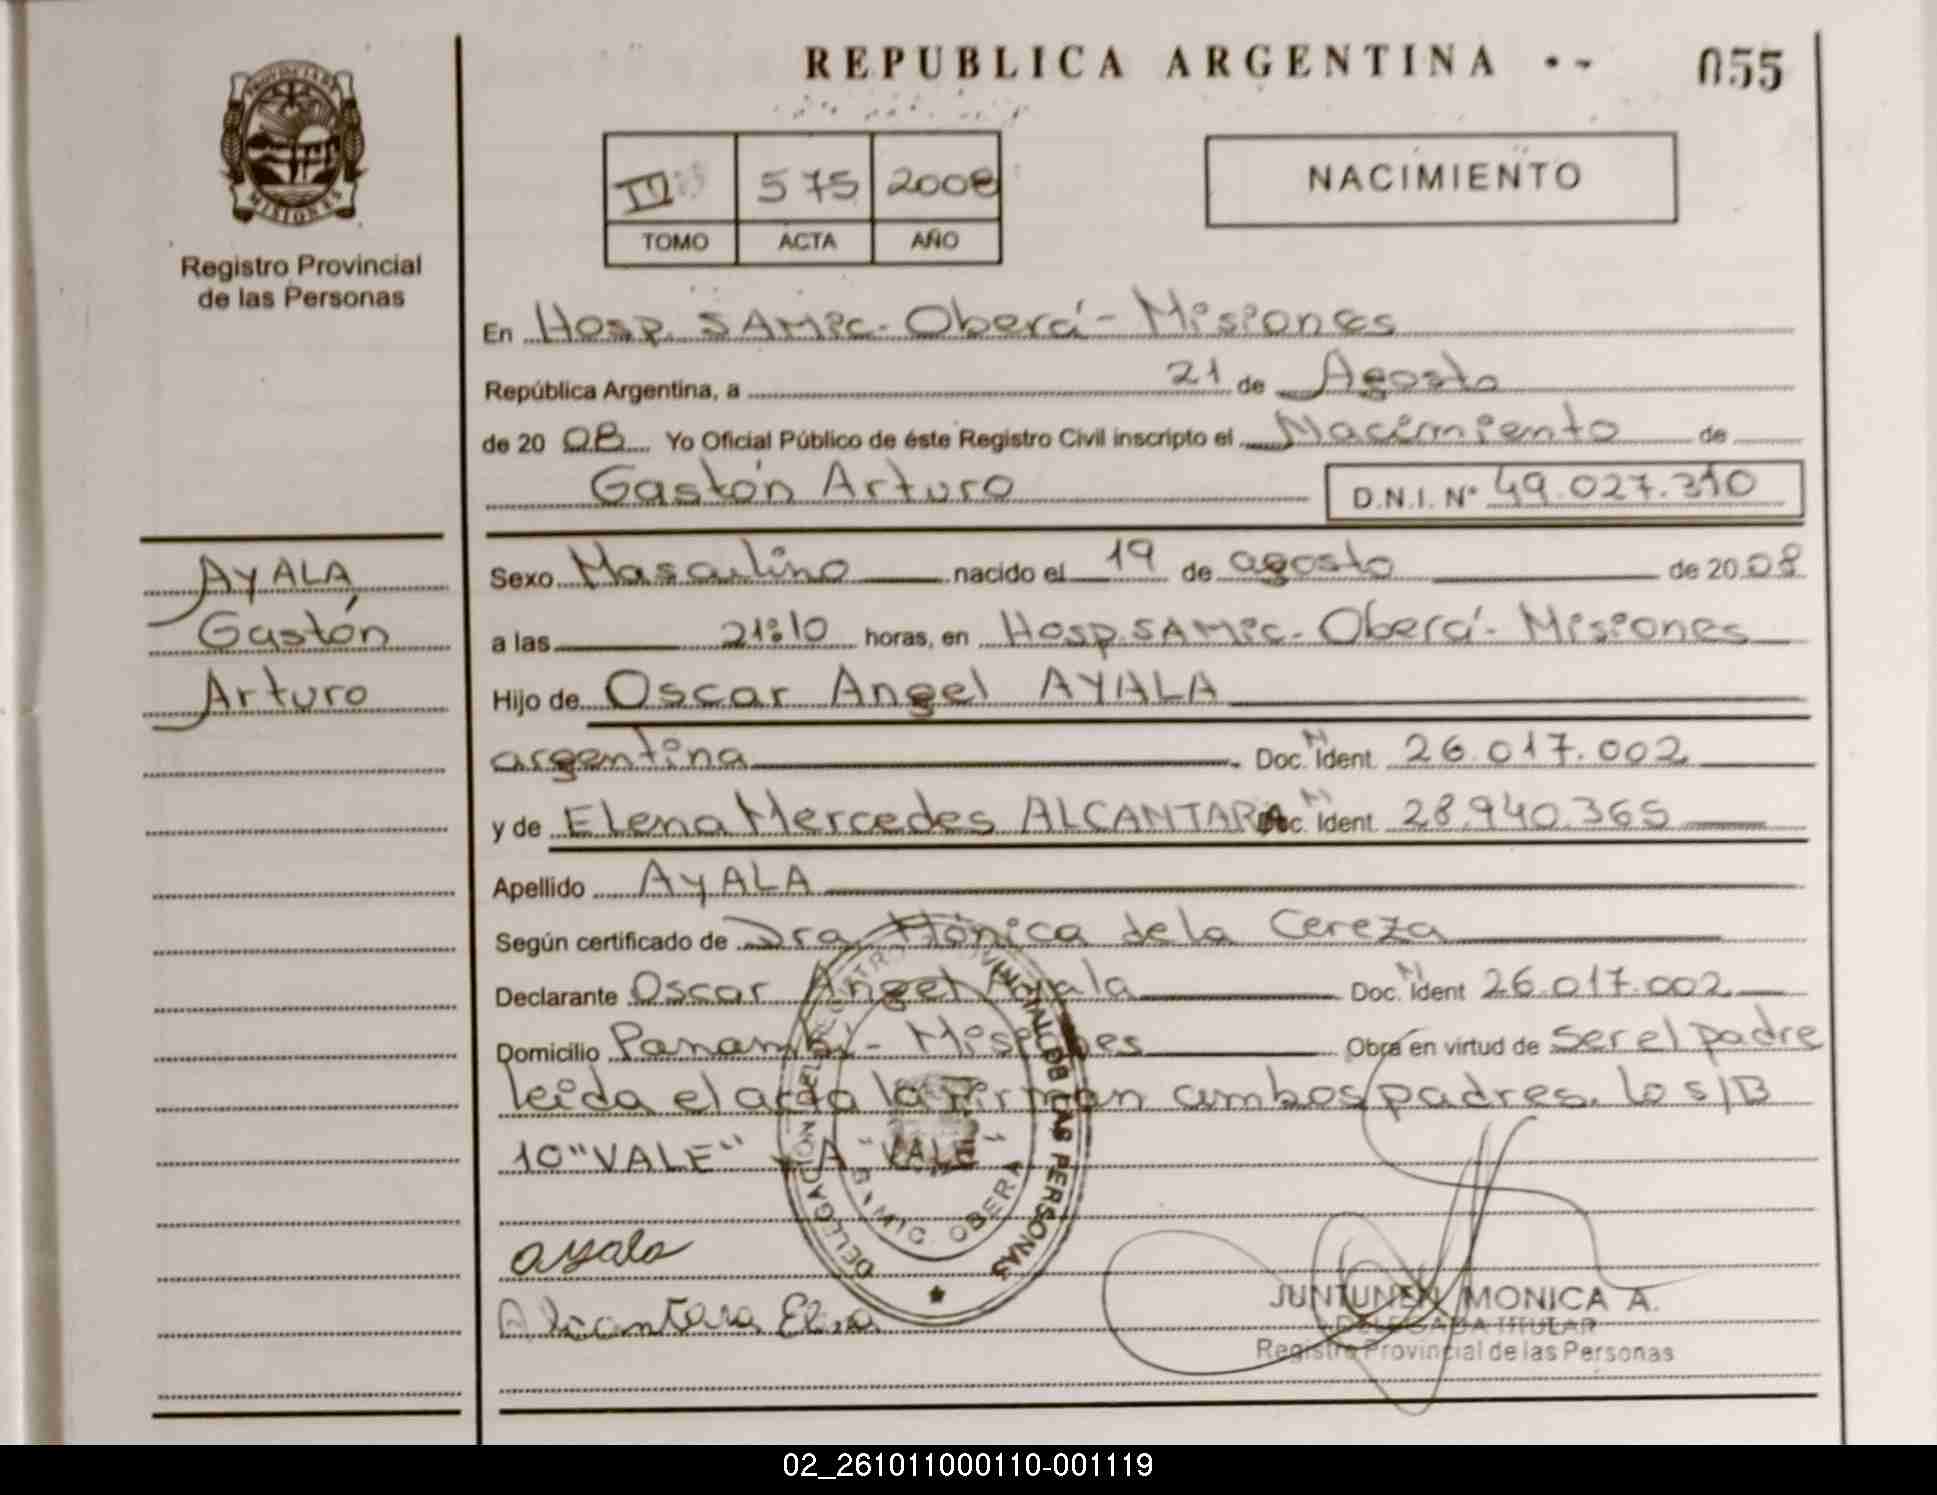 REPUBLICA ARGENTINA
055
PROVINCIA DE
MISIONES
Registro Provincial
de las Personas
575 2008
TOMO ACTA AÑO
NACIMIENTO
En Hosp. SAMic - Oberá - Misiones
República Argentina, a 21 de Agosto
de 20 08 Yo Oficial Público de éste Registro Civil inscripto el Nacimiento de
Gastón Arturo D.N.I. Nº 49.027.310
AYALA
Gastón
Arturo
Sexo Masculino nacido el 19 de agosto de 2008
a las 21:10 horas, en Hosp. SAMic - Oberá - Misiones
Hijo de Oscar Angel AYALA
argentina Doc. N Ident. 26.017.002
y de Elena Mercedes ALCANTARA Doc. N Ident. 28.940.365
Apellido AYALA
Según certificado de Dra. Mónica de la Cereza
Declarante Oscar Angel Ayala Doc. N Ident 26.017.002
Domicilio Panambí - Misiones Obra en virtud de ser el padre
leída el acta la firman ambos padres. lo s/B
10 "VALE" A "VALE"
DELEGACION DEL REGISTRO PROVINCIAL DE LAS PERSONAS
OBERA
ayala
Alcantara
JUNTUNEN MONICA A.
DELEGADA TITULAR
Registro Provincial de las Personas
02_261011000110-001119